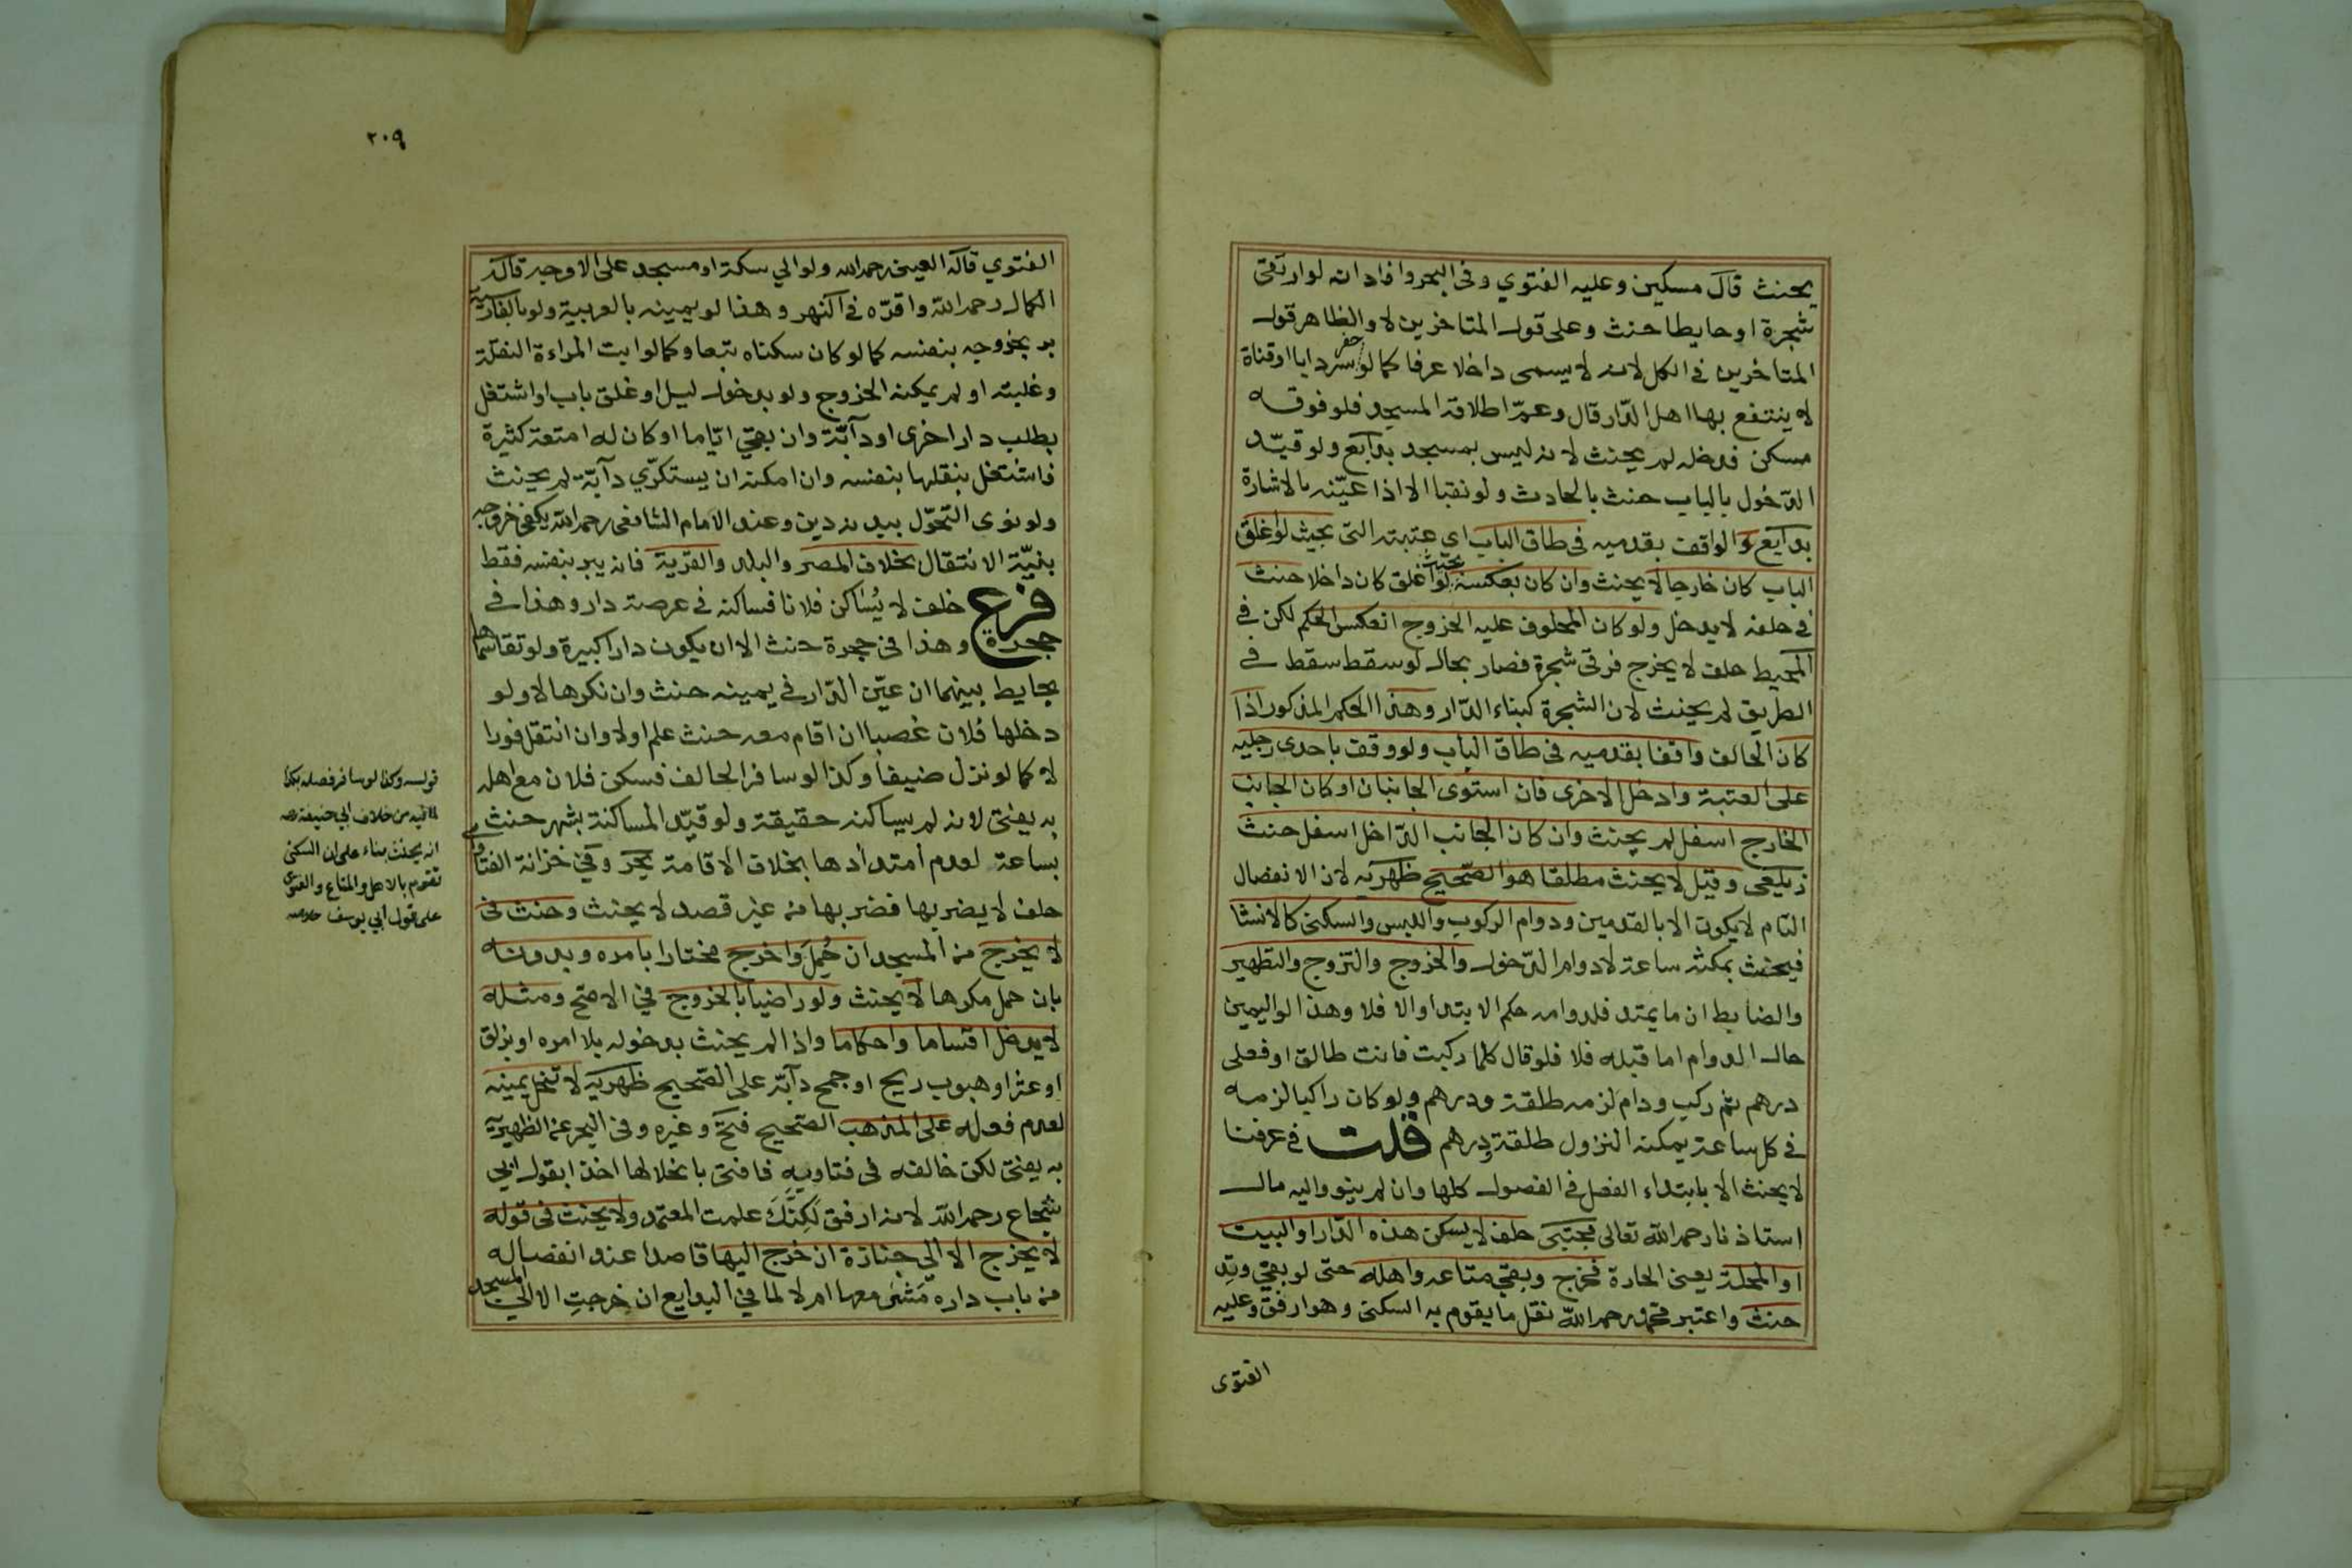 يحنث قال مسكين وعليه الفتوي وفى البحر وافاد انه لو ارتقى
شجرة او حايطا حنث وعلى قول المتاخرين لا والظاهر قول
المتاخرين في الكل لانه لا يسمى داخلا عرفا كما لو حفر سردابا او قناة
لا ينتفع بها اهل الدّار قال وعمّ اطلاقه المسجد فلو فوقه
مسكن فدخله لم يحنث لانه ليس بمسجد بدايع ولو قيّد
الدّخول بالباب حنث بالحادث ولو نقبا الا اذا عيّنه بالاشارة
بدايع و الواقف بقدميه فى طاق الباب اى عتبته التى بحيث لو اغلق
الباب كان خارجا لا يحنث وان كان بعكسه بحيث لو اغلق كان داخلا حنث
فى حلفه لا يدخل ولو كان المحلوف عليه الخروج انعكس الحكم لكن في
المحيط حلف لا يخرج فرقى شجرة فصار بحال لو سقط سقط في
الطريق لم يحنث لان الشجرة كبناء الدّار وهذا الحكم المذكور اذا
كان الحالف واقفا بقدميه فى طاق الباب ولو وقف باحدى رجليه
على العتبة وادخل الاخرى فان استوى الجانبان او كان الجانب
الخارج اسفل لم يحنث وان كان الجانب الدّاخل اسفل حنث
زيلعى وقيل لا يحنث مطلقا هو الصّحيح ظهريه لان الانفصال
التام لا يكون الا بالقدمين ودوام الركوب واللبس والسكنى كالانشا
فيحنث بمكثه ساعة لا دوام الدّخول والخروج والتزوج والتطهير
والضابط ان ما يمتد فلدوامه حكم الابتدا والا فلا وهذا لو اليمين
حال الدوام اما قبله فلا فلو قال كلما ركبت فانت طالق او فعلى
درهم ثم ركب ودام لزمه طلقة ودرهم ولو كان راكبا لزمه
في كل ساعة يمكنه النزول طلقة ودرهم قلت في عرفنا
لا يحنث الا بابتداء الفعل فى الفصول كلها وان لم ينو واليه مال
استاذنا رحمه اللّه تعالى مجتبى حلف لا يسكن هذه الدّار او البيت
او المحلة يعنى الحارة فخرج وبقي متاعه واهله حتى لو بقي وتِد
حنث واعتبر محمّد رحمه اللّه نقل ما يقوم به السكنى وهو ارفق وعليه
الفتوى
٢٠٩
الفتوي قاله العينى رحمه الله ولو الي سكة او مسجد على الاوجه قاله
الكمال رحمه اللّه واقرّه في النهر وهذا لو يمينه بالعربية ولو بالفارسية
بر بخروجه بنفسه كما لو كان سكناه تبعا وكما لو ابت المراءة النقلة
وغلبته او لم يمكنه الخروج ولو بدخول ليل او غلق باب او اشتغل
بطلب دار اخرى او دآبّة وان بقي ايّاما او كان له امتعة كثيرة
فاشتغل بنقلها بنفسه وان امكنه ان يستكرّي دآبّة لم يحنث
ولو نوى التحوّل ببدنه دين وعند الامام الشافعى رحمه اللّه يكفى خروجه
بنيّة الانتقال بخلاف المصر والبلد والقرية فانه يبر بنفسه فقط
فرع حلف لا يُسَاكن فلانا فساكنه في عرصة دار وهذا في
حجرة وهذا فى حجرة حنث الا ان يكون دارا كبيرة ولو تقاسماها
بحايط بينهما ان عيّن الدّار في يمينه حنث وان نكرها لا ولو
دخلها فُلان غصبا ان اقام معه حنث علم اولا وان انتقل فورا
لا كما لو نزل ضيفا وكذا لو سافر الحالف فسكن فلان مع اهله
به يفتى لانه لم يساكنه حقيقة ولو قيّد المساكنة بشهر حنث
بساعة لعدم امتدادها بخلاف الاقامة بحر وفي خزانة الفتاوى
حلف لا يضربها فضربها من غير قصد لا يحنث وحنث فى
لا يخرج من المسجد ان حُمِلَ واخرج مختارا بامره وبدونه
بان حمل مكرها لا يحنث ولو راضيا بالخروج في الاصح ومثله
لا يدخل اقساما واحكاما واذا لم يحنث بدخوله بلا امره او بزلق
او عثر او هبوب ريح او جمح دآبّه على الصّحيح ظهريه لا تنحل يمينه
لعدم فعله على المذهب الصّحيح فتح وغيره وفى البحر عن الظهيرية
به يفتى لكن خالفه فى فتاويه فافتى بانحلالها اخذا بقول ابي
شجاع رحمه اللّه لانه ارفق لَكِنّكَ علمت المعتمد ولا يحنث فى قوله
لا يخرج الا الي جنازة ان خرج اليها قاصدا عند انفصاله
من باب داره مَشَى معها ام لا لما في البدايع ان خرجتِ الا الى المسجد
قوله وكذا لو سافر فصله بكذا
انه يحنث بناء على ان السكنى
تقوم بالاهل والمتاع والفتوى
على قول ابي يوسف